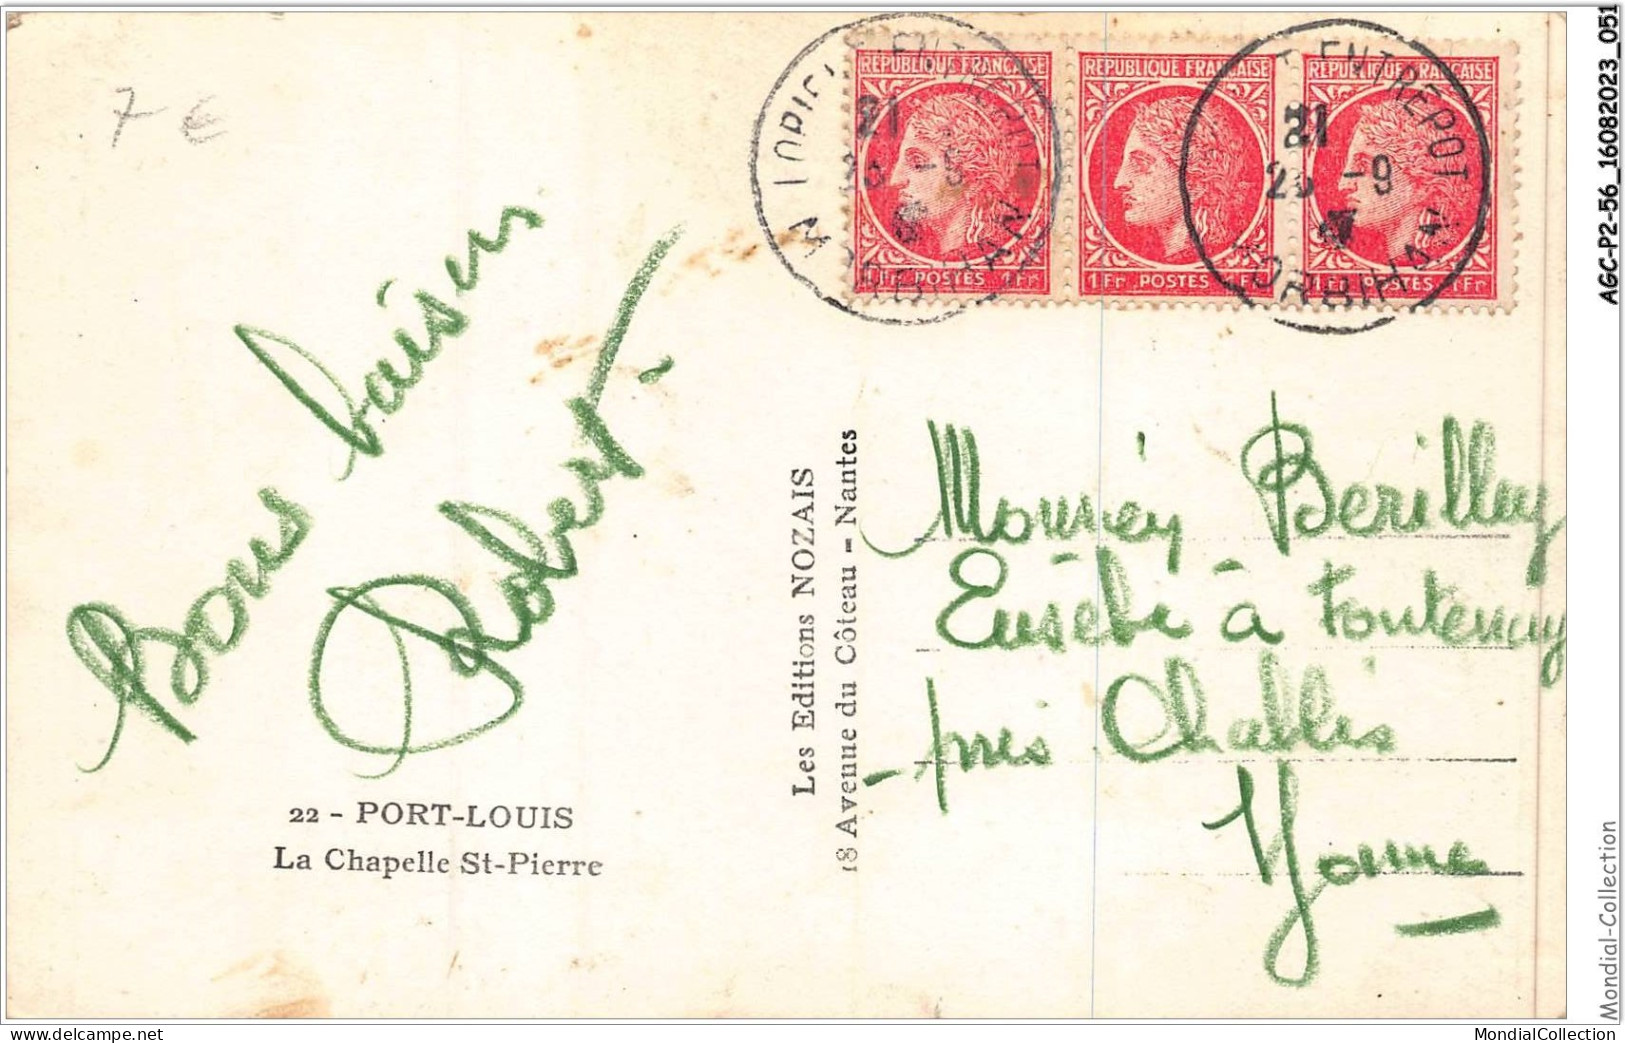 7 €
Bons baisers
Robert.
22 - PORT-LOUIS
La Chapelle St-Pierre
Les Editions NOZAIS
18 Avenue du Côteau - Nantes
REPUBLIQUE FRANÇAISE
1Fr POSTES 1Fr
REPUBLIQUE FRANÇAISE
1Fr POSTES 1Fr
REPUBLIQUE FRANÇAISE
1Fr POSTES 1Fr
LORIENT ENTREPOT
21
-9
MORBIHAN
ENTREPOT
21
-9
MORBIHAN
Eusèbe à Fontenay
près Chablis
Yonne
AGC-P2-56_16082023_051
Mondial-Collection
www.delcampe.net
MondialCollection